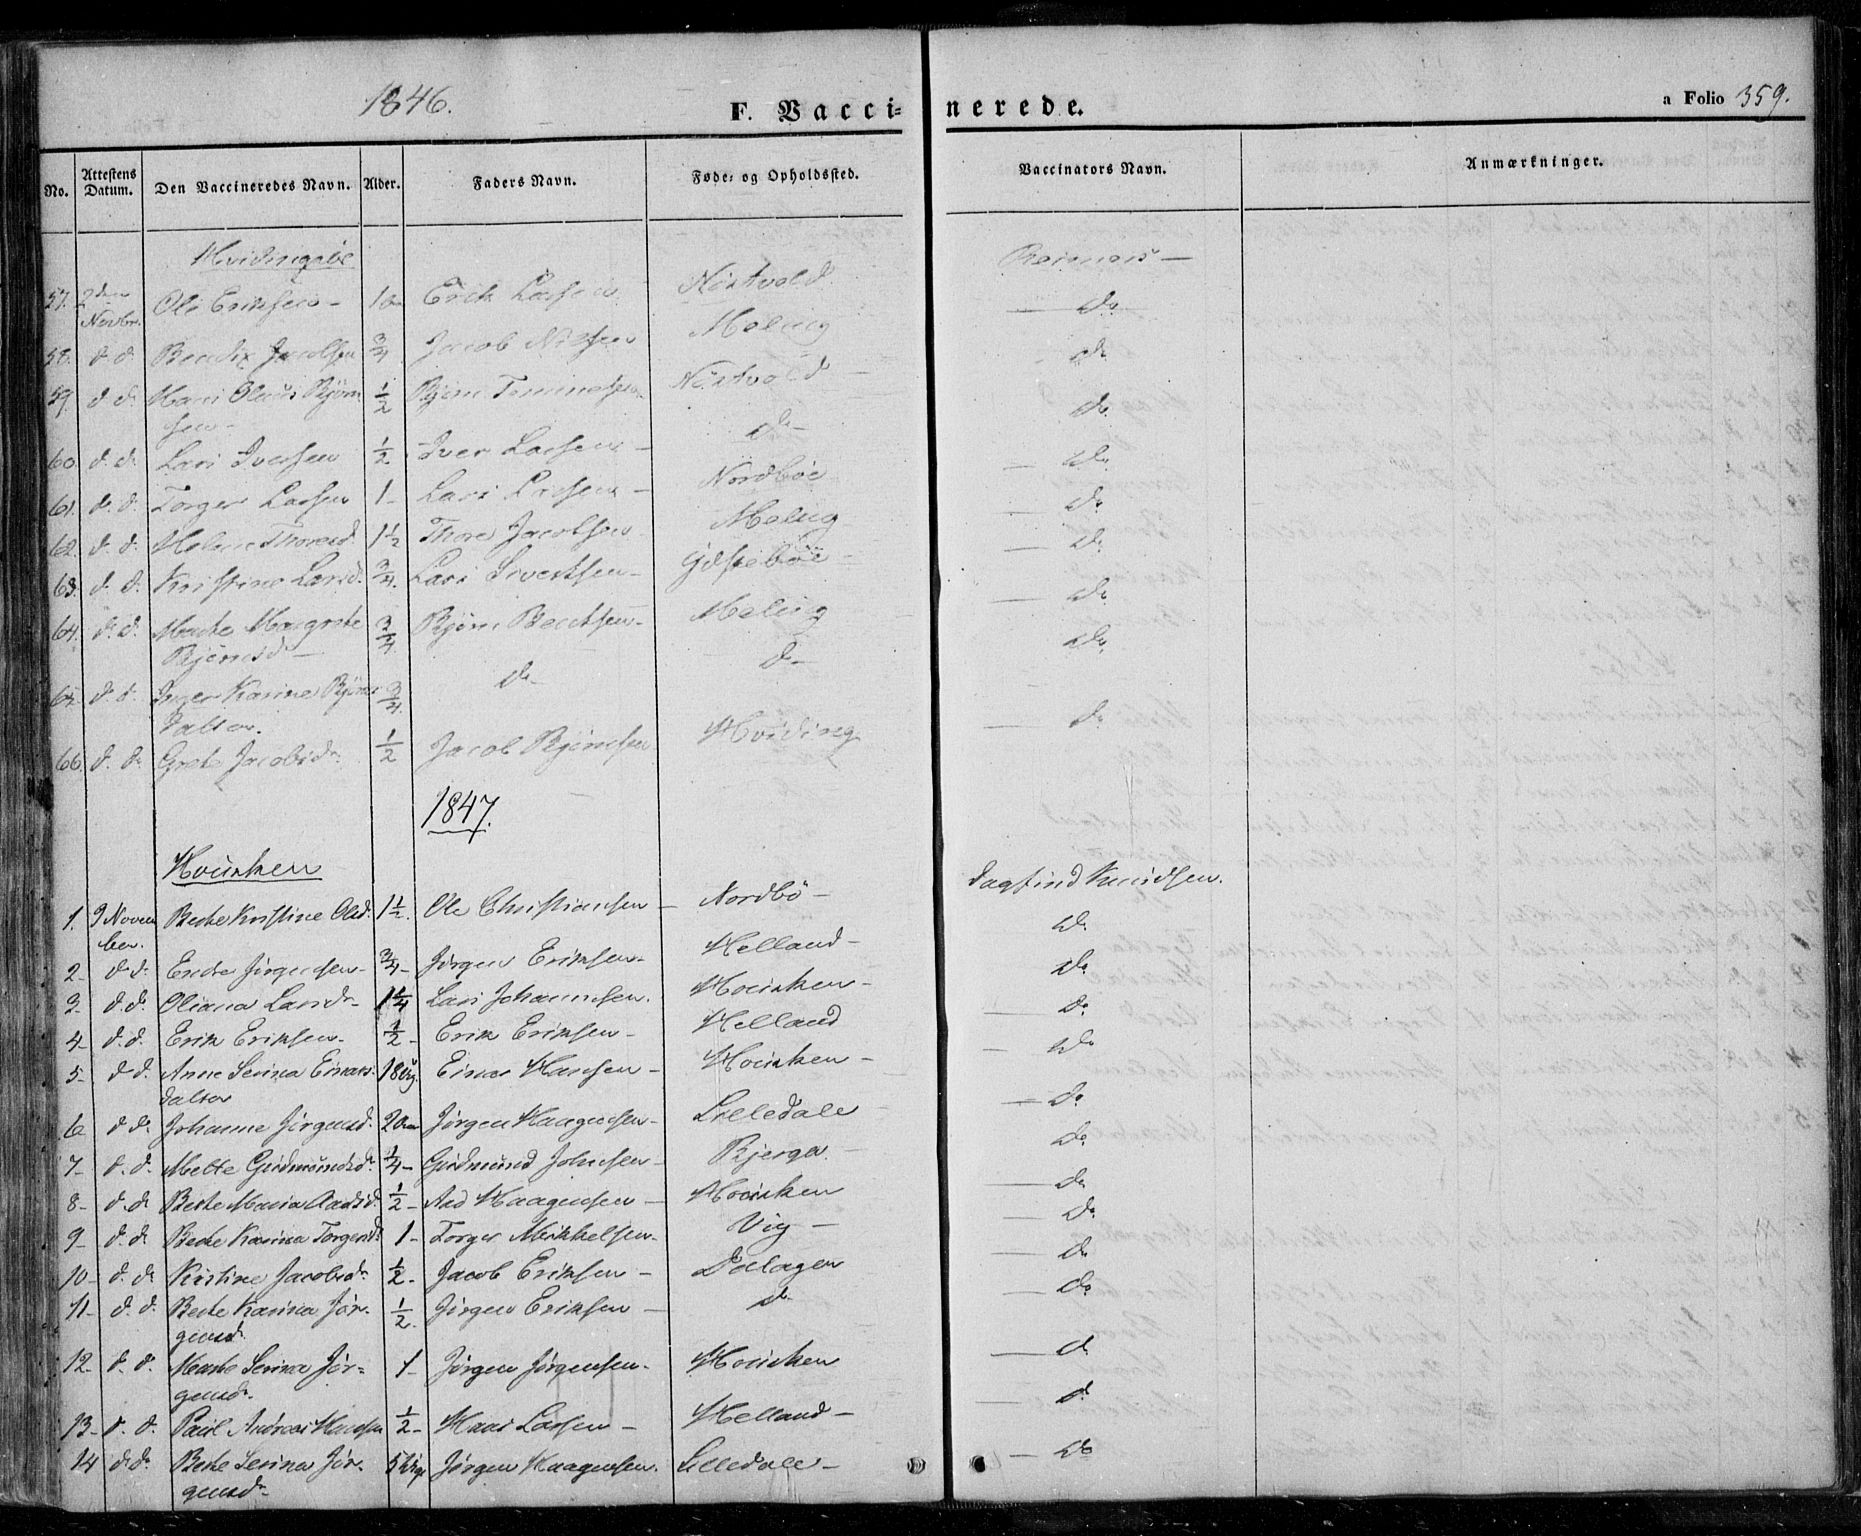 1846.
F. Vaccinerede.
a Folio 359.
No. Attestens Datum. Den Vaccineredes Navn. Alder. Faders Navn. Føde- og Opholdssted. Vaccinators Navn. Anmærkninger.
Hvidingsöe
57. 2den Novbr. Ole Eriksen - 10 Erick Larsen Nöstvold Do
58. d. d. Bendix Jacobsen 3/4 Jacob Nilsen Meling do
59. d d. Hans Olaus Bjørnsen - 1/2 Bjørn Tommesen Nöstvold do
60. d. d. Lars Iversen 1/2 Iver Larsen - do - Do
61. d. d. Torger Larsen 1 - Lars Larsen - Nordböe Do
62. d. d. Helene Thoresd 1 1/2 Thore Jacobsen Meling Do
63. d. d. Kristine Larsd. 3/4. Lars Sivertsen - Gjesteböe Do
64. d. d. Marte Margrete Bjørnsd - 3/4 Bjørn Bentsen - Meling Do
65. d. d. Inger Karine Bjørnsdatter. 3/4. do - do -
66. d. do Grete Jacobsdr. 1/2 Jacob Bjørnsen Hviding Do
1847.
Housken
1. 9 November. Berte Kristine Olsd. 1 1/2. Ole Christiansen - Nordbö - Dagfind Knudsen.
2 - d d. Endre Jørgensen - 3/4 - Jørgen Eriksen - Helland - Do
3 - d. d. Oliana Larsdr - 1 1/4 Lars Johannesen. Housken - Do
4 - d. d. Erik Eriksen - 1/2 - Erik Eriksen - Helland Do
5 - d d. Anne Serina Einarsdatter 18 Ug. Einar Hansen - Housken - Do
6 d do Johanne Jørgensd. 20 Jørgen Haagensen - Lilledale Do
7 - d. d. Mette Gudmundsd. 1/4 - Gudmund Johnsen - Bjerga - Do
8 - d. d Berte Maria Aadsd. 1/2 - Aad Haagensen - Housken Do
9 - d. d. Berte Karina Torgersd. 1 - Torger Mikkelsen - Vig - Do
10 - d. do Kristine Jacobsdr 1/2 - Jacob Eriksen - Dalagen Do
11 - d. d. Berte Karina Jørgensd. 1/2. Jørgen Eriksen - do Do
12 - d. d. Marte Serina Jørgensd. 1 - Jørgen Jørgensen - Housken do
13 - d. d. Paul Andreas Hansen 1/2 - Hans Larsen - Helland - do
14 d. do Berte Serina Jørgensdr 5 Uge Jørgen Haagensen. Lilledale - Do